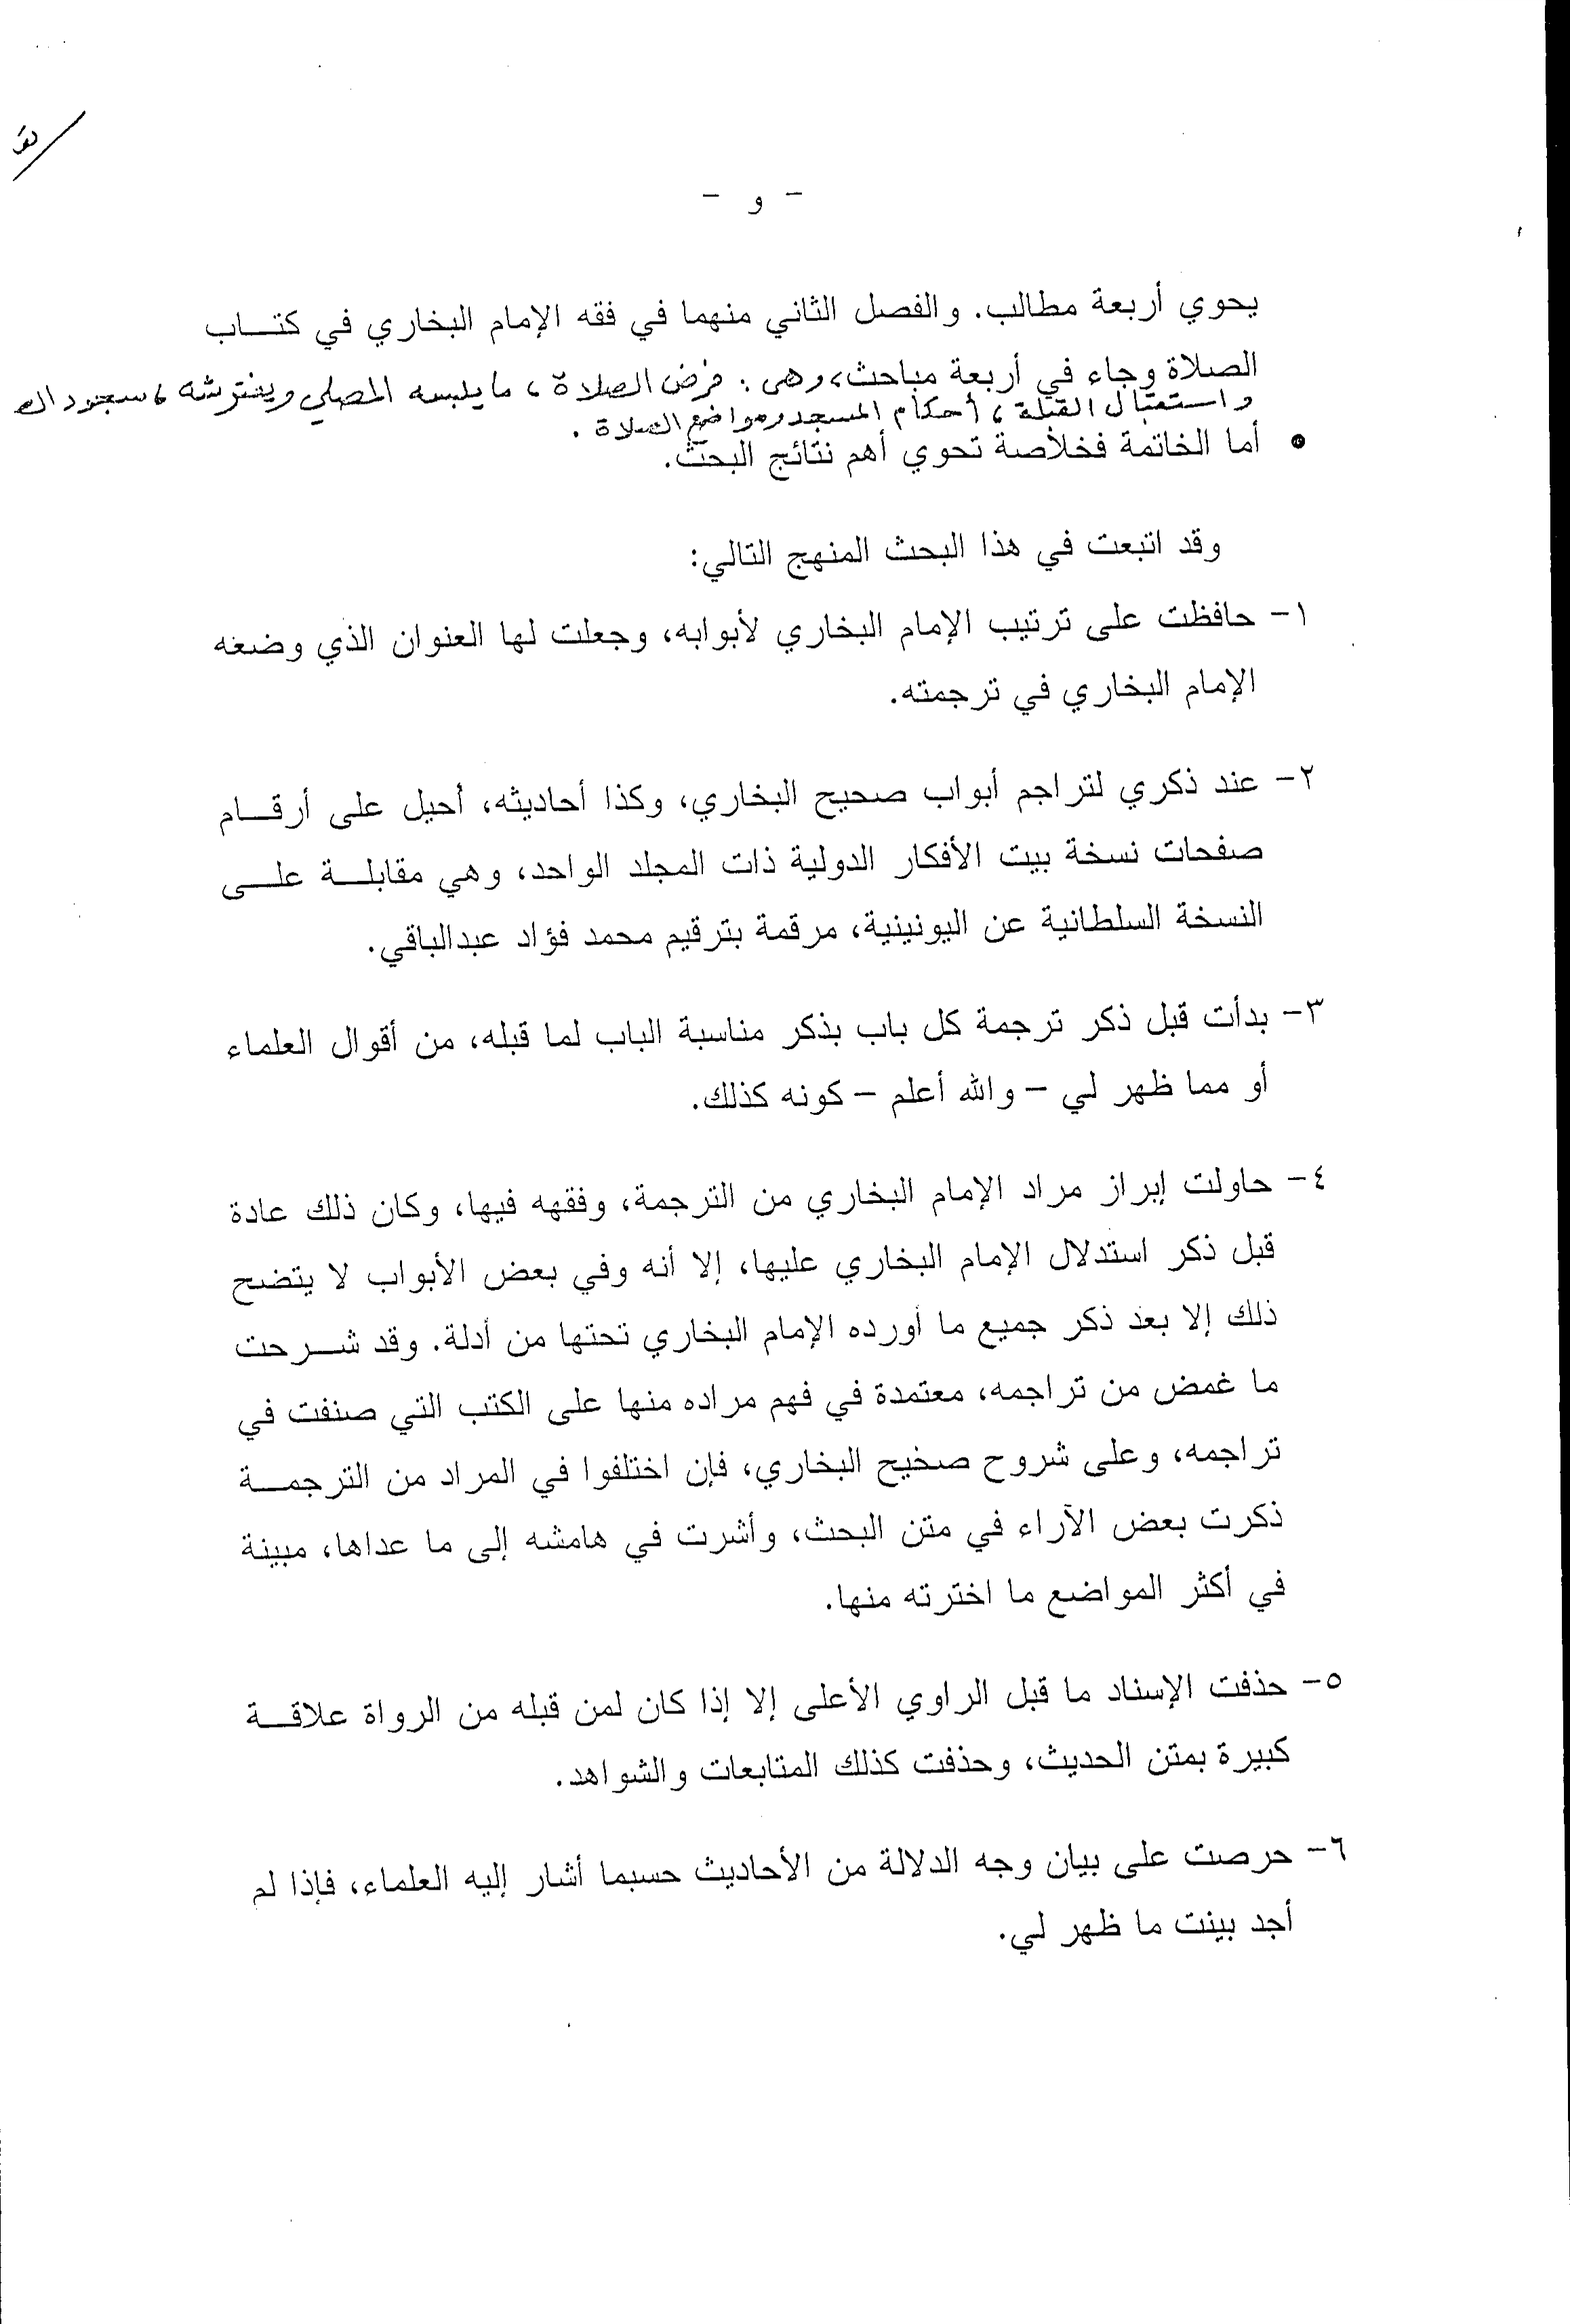 - و -
يحوي أربعة مطالب. والفصل الثاني منهما في فقه الإمام البخاري في كتـــاب
الصلاة وجاء في أربعة مباحث، وهي: فرض الصلاة، ما يلبسه المصلي ويفترشه، سجود
واستقبال القبلة، أحكام المسجد ومواضع الصلاة.
• أما الخاتمة فخلاصة تحوي أهم نتائج البحث.
وقد اتبعت في هذا البحث المنهج التالي:
١- حافظت على ترتيب الإمام البخاري لأبوابه، وجعلت لها العنوان الذي وضعه
الإمام البخاري في ترجمته.
٢- عند ذكري لتراجم أبواب صحيح البخاري، وكذا أحاديثه، أحيل على أرقـــام
صفحات نسخة بيت الأفكار الدولية ذات المجلد الواحد، وهي مقابلـــة علـــى
النسخة السلطانية عن اليونينية، مرقمة بترقيم محمد فؤاد عبدالباقي.
٣- بدأت قبل ذكر ترجمة كل باب بذكر مناسبة الباب لما قبله، من أقوال العلماء
أو مما ظهر لي - والله أعلم - كونه كذلك.
٤- حاولت إبراز مراد الإمام البخاري من الترجمة، وفقهه فيها، وكان ذلك عادة
قبل ذكر استدلال الإمام البخاري عليها، إلا أنه وفي بعض الأبواب لا يتضح
ذلك إلا بعد ذكر جميع ما أورده الإمام البخاري تحتها من أدلة. وقد شـــرحت
ما غمض من تراجمه، معتمدة في فهم مراده منها على الكتب التي صنفت في
تراجمه، وعلى شروح صحيح البخاري، فإن اختلفوا في المراد من الترجمـــة
ذكرت بعض الآراء في متن البحث، وأشرت في هامشه إلى ما عداها، مبينة
في أكثر المواضع ما اخترته منها.
٥- حذفت الإسناد ما قبل الراوي الأعلى إلا إذا كان لمن قبله من الرواة علاقـــة
كبيرة بمتن الحديث، وحذفت كذلك المتابعات والشواهد.
٦- حرصت على بيان وجه الدلالة من الأحاديث حسبما أشار إليه العلماء، فإذا لم
أجد بينت ما ظهر لي.